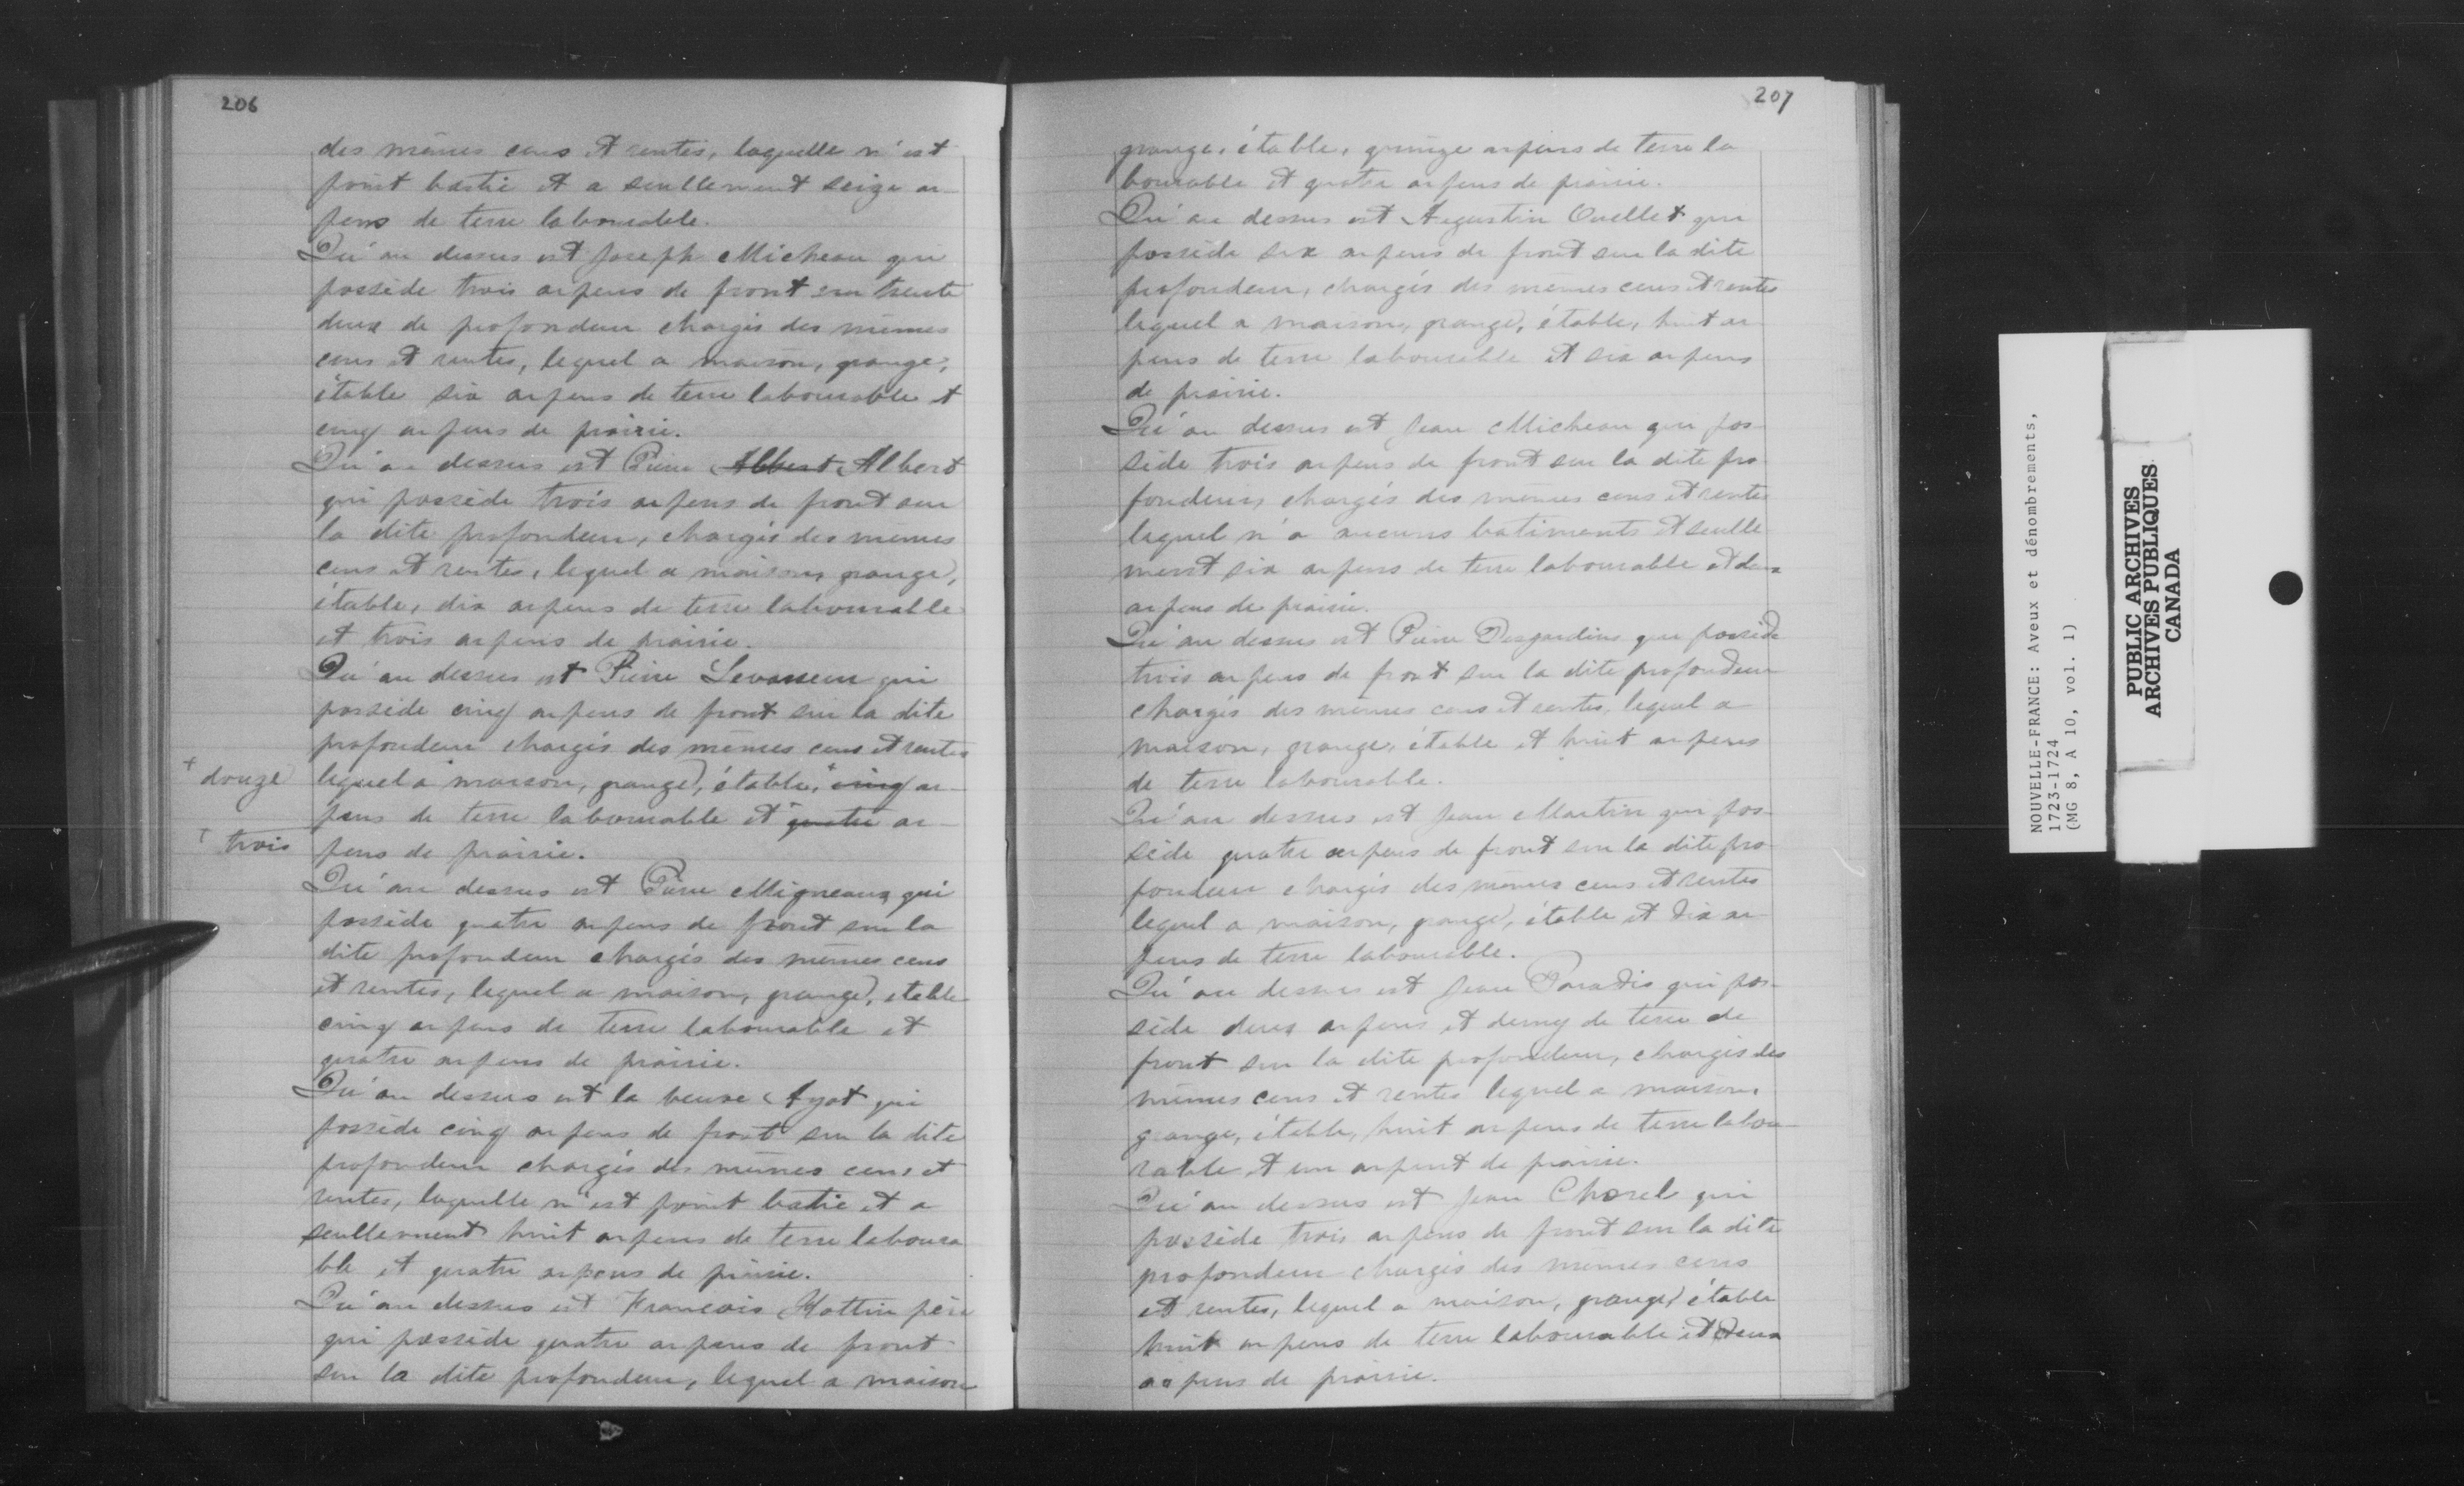 206
des mêmes cens et rentes, laquelle n'est
point bastie et a seullement seize ar-
pens de terre labourable.
Qu'au dessus est Joseph Micheau qui
possède trois arpens de front sur trente
deux de profondeur chargés des mêmes
cens et rentes, lequel a maison, grange,
étable six arpens de terre labourable et
cinq arpens de prairie.
Qu'au dessus est Pierre Albert Albert
qui possède trois arpens de front sur
la dite profondeur, chargés des memes
cens et rentes, lequel a maison, grange,
étable, dix arpens de terre labourable
et trois arpens de prairie.
Qu'au dessus est Pierre Levasseur qui
possède cinq arpens de front sur la dite
profondeur chargés des mêmes cens et rentes
+ douze
lequel a maison, grange, étable, + cinq ar-
pens de terre labourable et + quatre ar-
+ trois
pens de prairie.
Qu'au dessus est Pierre Migneaux qui
possède quatre arpens de front sur la
dite profondeur chargés des mêmes cens
et rentes, lequel a maison, grange, etable
cinq arpens de terre labourable et
quatre arpens de prairie.
Qu'au dessus est la veuve Ayot qui
possède cinq arpens de front sur la dite
profondeur chargés des mêmes cens et
rentes, laquelle n'est point bastie et a
seullement huit arpens de terre laboura
ble et quatre arpens de prairie.
Qu'au dessus est Francois Hottin père
qui possède quatre arpens de front
sur la dite profondeur, lequel a maison
207
grange, étable, quinze arpens de terre la
bourable et quatre arpens de prairie.
Qu'au dessus est Augustin Ouellet qui
possède six arpens de front sur la dite
profondeur, chargés des mêmes cens et rentes
lequel a maison, grange, étable, huit ar
pens de terre labourable et six arpens
de prairie.
Qu'au dessus est Jean Micheau qui pos-
sède trois arpens de front sur la dite pro
fondeur, chargés des mêmes cens et rentes
lequel n'a aucuns batiments et seulle
ment six arpens de terre labourable et deux
arpens de prairie.
Qu'au dessus est Pierre Desjardins qui possède
trois arpens de front sur la dite profondeur
chargés des mêmes cens et rentes, lequel a
maison, grange, étable et huit arpens
de terre labourable.
Qu'au dessus est Jean Martin qui pos-
sède quatre arpens de front sur la dite pro
fondeur chargés des mêmes cens et rentes
lequel a maison, grange, étable et dix ar
pens de terre labourable.
Qu'au dessus est Jean Paradis qui pos-
sède deux arpens et demy de terre de
front sur la dite profondeur, chargés des
mêmes cens et rentes lequel a maison,
grange, étable, huit arpens de terre labou-
rable et un arpent de prairie.
Qu'au dessus est Jean Chorel qui
possède trois arpens de front sur la dite
profondeur chargés des mêmes cens
et rentes, lequel a maison, grange, étable
huit arpens de terre labourable et deux
arpens de prairie.
NOUVELLE-FRANCE: Aveux et dénombrements,
1723-1724
(MG 8, A 10, vol. 1)
PUBLIC ARCHIVES
ARCHIVES PUBLIQUES
CANADA